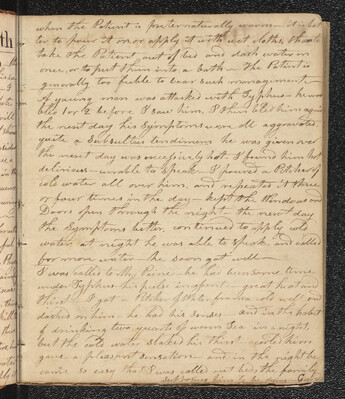 when the Patient is preternaturally warm — it is bet
ter to pour it on or apply it with wet cloths than to
take the Patient out of bed and dash water on
once, or to put them into a bath — The Patient is
generally too feeble to bear such management —
A young man was attacked with Typhus — he was
bled 1 or 2 before I saw him, I then bled him again
the next day his Symptoms were all aggravated
quite a Subsultus tendinum he was given over
the next day was excessively hot. I found him hot
delirious — unable to speak. I poured a Pitcher of
cold water all over him, and repeated it three
or four times in the day — kept the Windows and
Doors open through the night — the next day
the Symptoms better, continued to apply cold
water, at night he was able to speak, and called
for more water — he soon got well —
I was called to Mr Paine he had been some time
under Typhus his pulse great heat and
thirst I got a Pitcher of Water from a cold well and
dashed on him — he had his senses and in the habit
of drinking two quarts of warm Tea in a night,
but the cold water slaked his thirst — cold
gave a pleasant sensation — and in the night be
came so easy that I was called out bed, the family
him to be